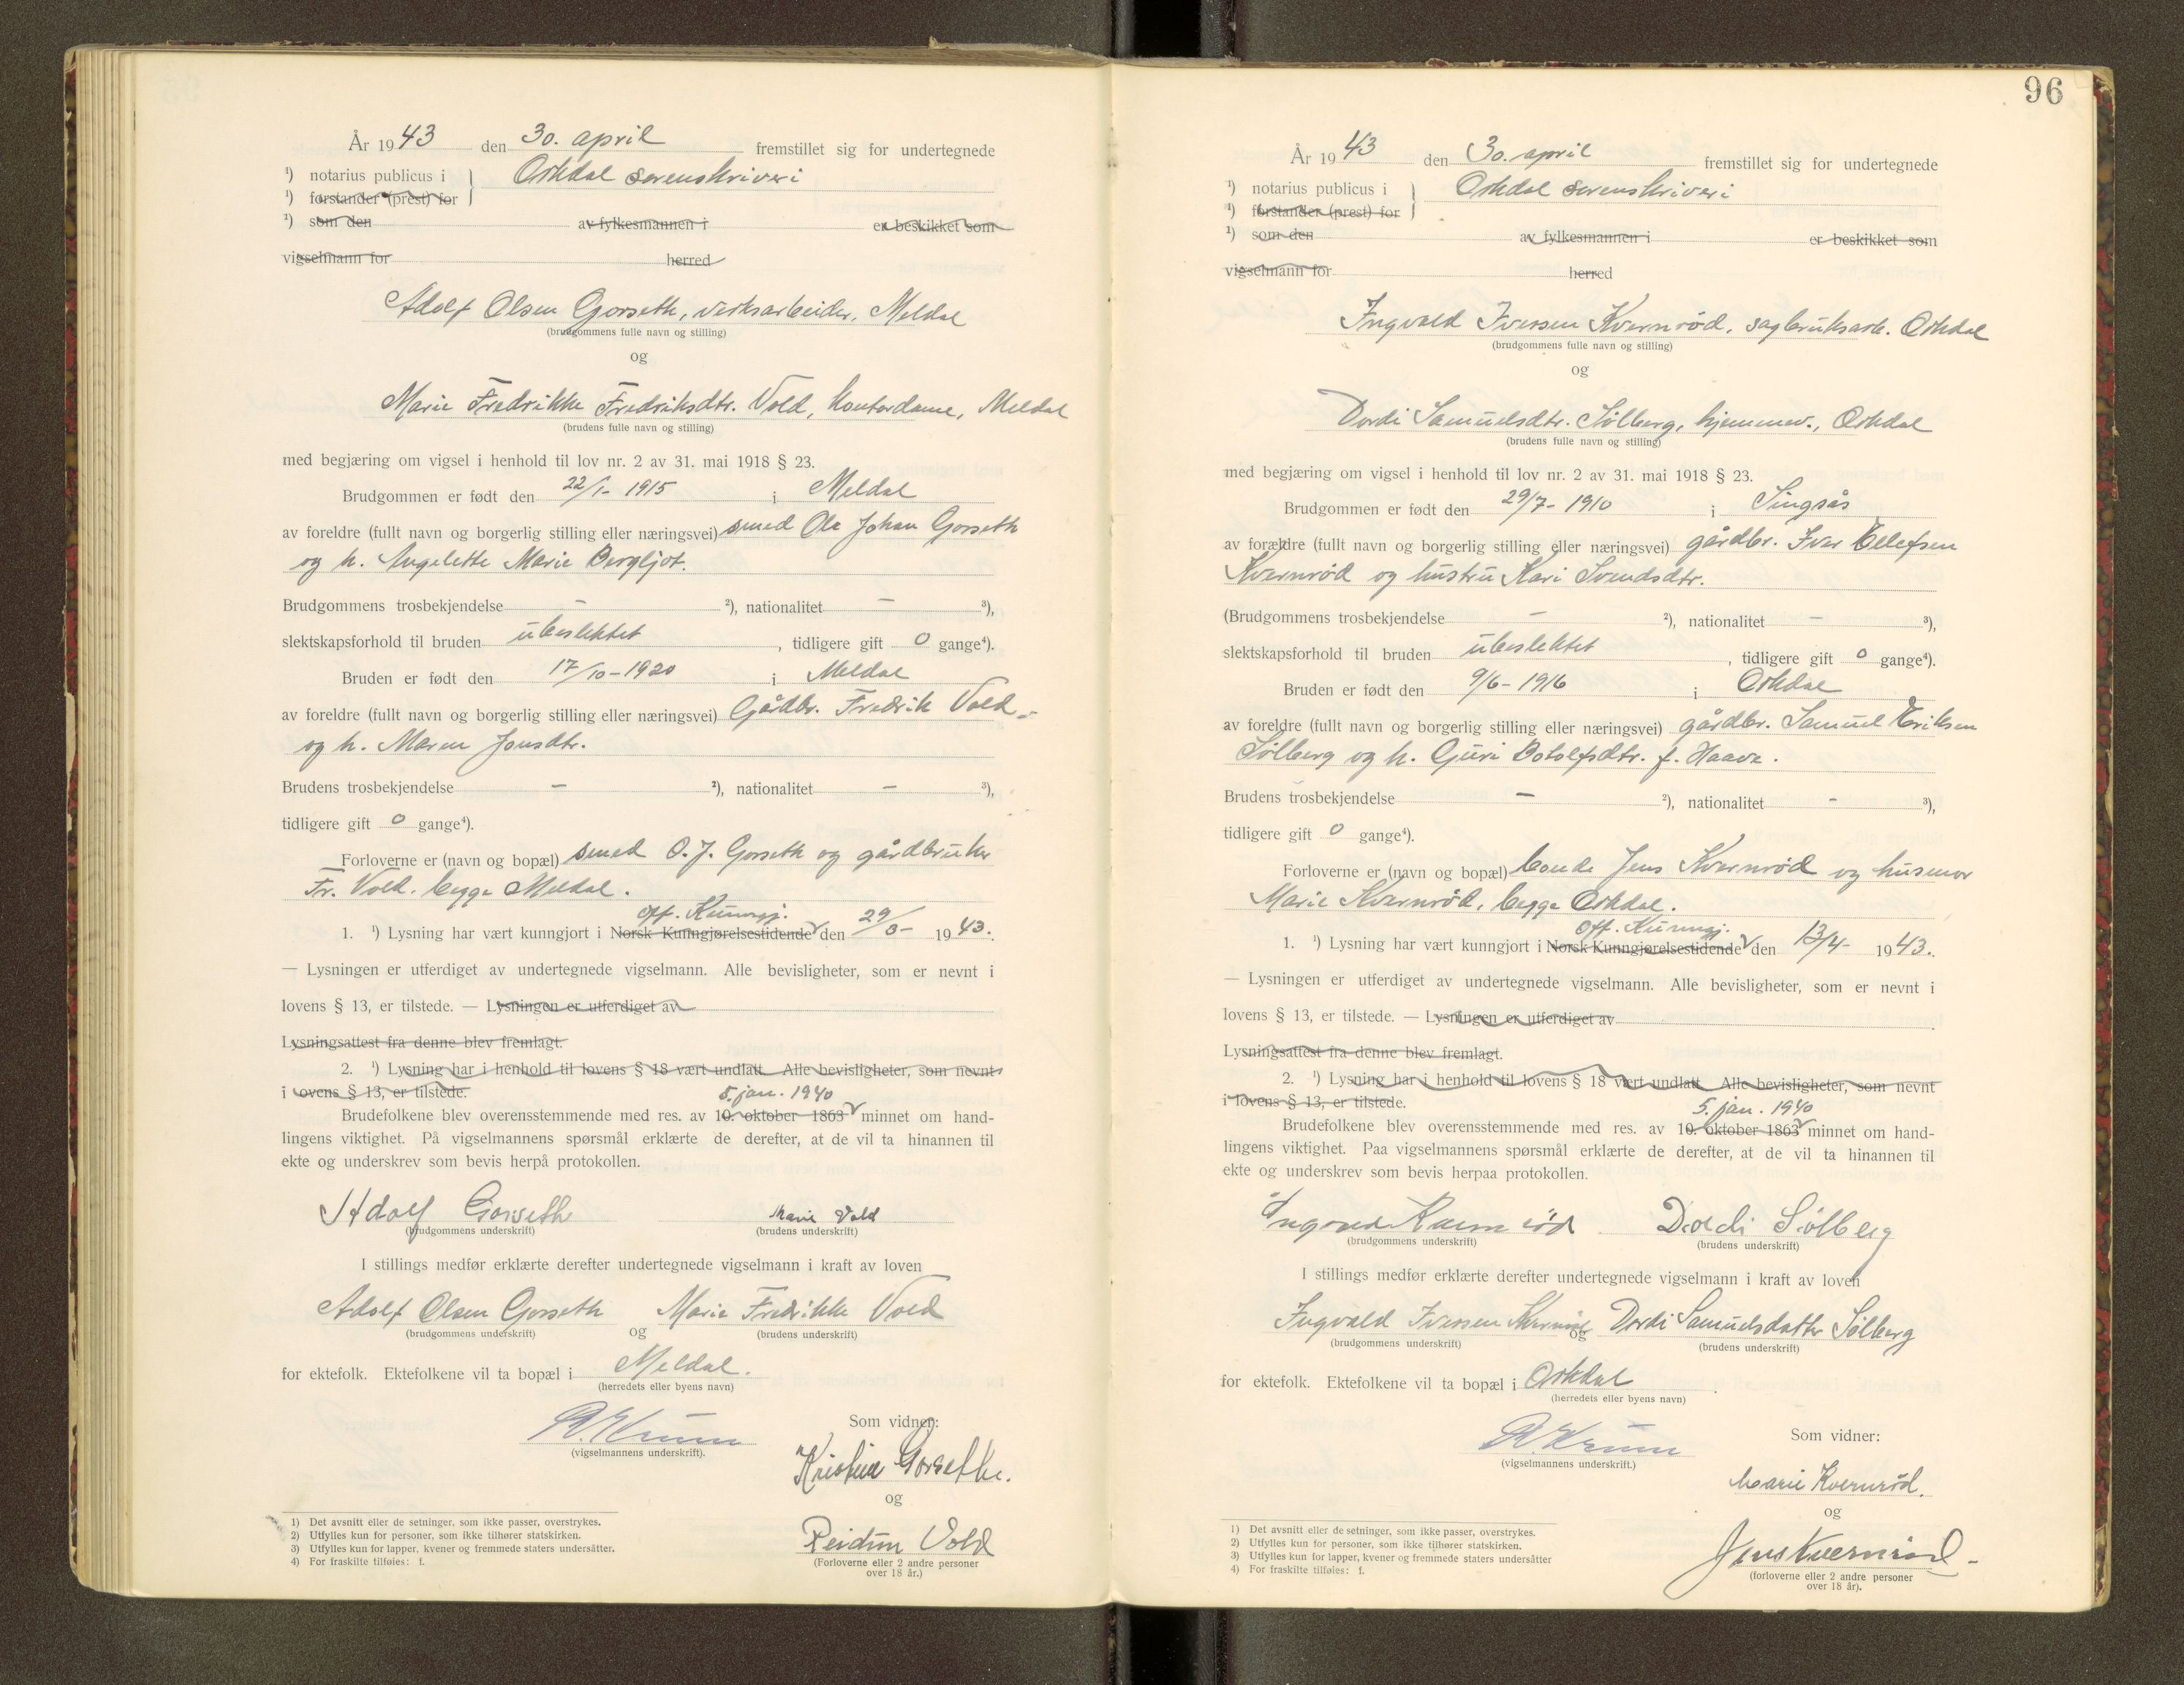 År 1943 den 30. april fremstillet sig for undertegnede
¹) notarius publicus i } Orkdal sorenskriveri
¹) forstander (prest) for
¹) som den av fylkesmannen i er beskikket som
vigselmann for herred
Adolf Olsen Gorseth, verksarbeider, Meldal
(brudgommens fulle navn og stilling)
og
Marie Fredrikke Fredriksdtr. Vold, kontordame, Meldal
(brudens fulle navn og stilling)
med begjæring om vigsel i henhold til lov nr. 2 av 31. mai 1918 § 23.
Brudgommen er født den 22/1- 1915 i Meldal
av foreldre (fullt navn og borgerlig stilling eller næringsvei) smed Ole Johan Gorseth
og h. Angelette Marie Bergljot.
Brudgommens trosbekjendelse - ²), nationalitet - ³),
slektskapsforhold til bruden ubeslektet, tidligere gift 0 gange⁴).
Bruden er født den 17/10-1920 i Meldal
av foreldre (fullt navn og borgerlig stilling eller næringsvei) Gårdbr. Fredrik Vold -
og h. Maren Jonsdtr.
Brudens trosbekjendelse - ²), nationalitet - ³),
tidligere gift 0 gange⁴).
Forloverne er (navn og bopæl) smed O. J. Gorseth og gårdbruker
Fr. Vold, begge Meldal.
off. Kunngj.
1. ¹) Lysning har vært kunngjort i Norsk Kunngjørelsestidende den 29/3- 1943.
— Lysningen er utferdiget av undertegnede vigselmann. Alle bevisligheter, som er nevnt i
lovens § 13, er tilstede. — Lysningen er utferdiget av
Lysningsattest fra denne blev fremlagt.
2. ¹) Lysning har i henhold til lovens § 18 vært undlatt. Alle bevisligheter, som nevnt
i lovens § 13, er tilstede.
5. jan. 1940
Brudefolkene blev overensstemmende med res. av 10. oktober 1863 minnet om hand-
lingens viktighet. På vigselmannens spørsmål erklærte de derefter, at de vil ta hinannen til
ekte og underskrev som bevis herpå protokollen.
Adolf Gorseth Marie Vold
(brudgommens underskrift) (brudens underskrift)
I stillings medfør erklærte derefter undertegnede vigselmann i kraft av loven
Adolf Olsen Gorseth og Marie Fredrikke Vold
(brudgommens underskrift) (brudens underskrift)
for ektefolk. Ektefolkene vil ta bopæl i Meldal.
(herredets eller byens navn)
Som vidner:
(vigselmannens underskrift).
Kristine Gorseth.
og
Reidun Vold
(Forloverne eller 2 andre personer
over 18 år.)
1) Det avsnitt eller de setninger, som ikke passer, overstrykes.
2) Utfylles kun for personer, som ikke tilhører statskirken.
3) Utfylles kun for lapper, kvener og fremmede staters undersåtter.
4) For fraskilte tilføies: f.
96
År 1943 den 30. april fremstillet sig for undertegnede
¹) notarius publicus i } Orkdal sorenskriveri
¹) forstander (prest) for
¹) som den av fylkesmannen i er beskikket som
vigselmann for herred
Ingvald Iversen Kvernrød, sagbruksarb. Orkdal
(brudgommens fulle navn og stilling)
og
Dordi Samuelsdtr. Sølberg, hjemmev., Orkdal
(brudens fulle navn og stilling)
med begjæring om vigsel i henhold til lov nr. 2 av 31. mai 1918 § 23.
Brudgommen er født den 29/7- 1910 i Singsås
av forældre (fullt navn og borgerlig stilling eller næringsvei) gårdbr. Iver Ellefsen
Kvernrød og hustru Kari Svendsdtr.
(Brudgommens trosbekjendelse - ²), nationalitet - ³),
slektskapsforhold til bruden ubeslektet, tidligere gift 0 gange⁴).
Bruden er født den 9/6- 1916 i Orkdal
av foreldre (fullt navn og borgerlig stilling eller næringsvei) gårdbr. Samuel Eriksen
Sølberg og h. Guri Botolfsdtr. f. Haave.
Brudens trosbekjendelse - ²), nationalitet - ³),
tidligere gift 0 gange⁴).
Forloverne er (navn og bopæl) bonde Jens Kvernrød og husmor
Marie Kvernrød, begge Orkdal.
Off. Kunngj.
1. ¹) Lysning har vært kunngjort i Norsk Kunngjørelsestidende den 13/4- 1943.
— Lysningen er utferdiget av undertegnede vigselmann. Alle bevisligheter, som er nevnt i
lovens § 13, er tilstede. — Lysningen er utferdiget av
Lysningsattest fra denne blev fremlagt.
2. ¹) Lysning har i henhold til lovens § 18 vært undlatt. Alle bevisligheter, som nevnt
i lovens § 13, er tilstede.
5. jan. 1940
Brudefolkene blev overensstemmende med res. av 10. oktober 1863 minnet om hand-
lingens viktighet. Paa vigselmannens spørsmål erklærte de derefter, at de vil ta hinannen til
ekte og underskrev som bevis herpaa protokollen.
Ingvald Kvernrød Dordi Sølberg
(brudgommens underskrift) (brudens underskrift)
I stillings medfør erklærte derefter undertegnede vigselmann i kraft av loven
Ingvald Iversen Kvernrød og Dordi Samuelsdatter Sølberg
(brudgommens underskrift) (brudens underskrift)
for ektefolk. Ektefolkene vil ta bopæl i Orkdal
(herredets eller byens navn)
Som vidner:
(vigselmannens underskrift.)
Marie Kvernrød.
og
Jens Kvernrød -
(forloverne eller 2 andre personer
over 18 år).
1) Det avsnitt eller de setninger, som ikke passer, overstrykes.
2) Utfylles kun for personer, som ikke tilhører statskirken.
3) Utfylles kun for lapper, kvener og fremmede staters undersåtter
4) For fraskilte tilføies: f.